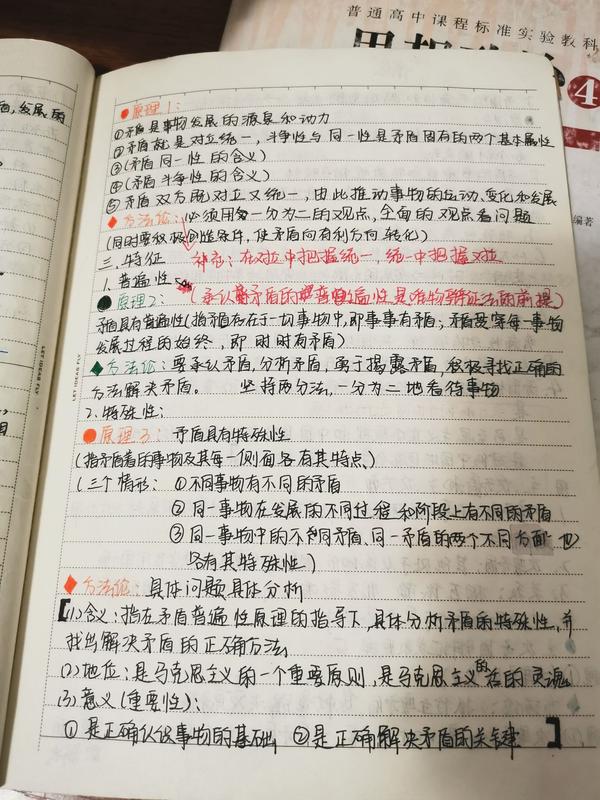 普通高中课程标准实验教科
思想政治
4
编著
面,发展的
LET IDEAS FLY
LET IDEAS FLY
原理1:
①矛盾是事物发展的源泉和动力
②矛盾就是对立统一,斗争性与同一性是矛盾固有的两个基本属性
③(矛盾同一性的含义)
④(矛盾斗争性的含义)
⑤矛盾双方既对立又统一,由此推动事物的运动、变化和发展
方法论:必须用一分为二的观点,全面的观点看问题
(同时要积极创造条件,使矛盾向有利方向转化)
三、特征 补充:在对立中把握统一,统一中把握对立
1.普遍性
原理2: (承认矛盾的普遍性是唯物辩证法的前提)
矛盾具有普遍性(指矛盾存在于一切事物中,即事事有矛盾;矛盾贯穿每一事物
发展过程的始终,即时时有矛盾)
方法论:要承认矛盾,分析矛盾,勇于揭露矛盾,积极寻找正确的
方法解决矛盾。 坚持两分法,一分为二地看待事物
2.特殊性:
原理3:矛盾具有特殊性
(指矛盾着的事物及其每一侧面各有其特点)
(三个情形:①不同事物有不同的矛盾
②同一事物在发展的不同过程和阶段上有不同的矛盾
③同一事物中的不同矛盾、同一矛盾的两个不同方面也
各有其特殊性)
方法论:具体问题具体分析
【(1)含义:指在矛盾普遍性原理的指导下,具体分析矛盾的特殊性,并
找出解决矛盾的正确方法
(2)地位:是马克思主义的一个重要原则,是马克思主义的活的灵魂
(3)意义(重要性):
①是正确认识事物的基础 ②是正确解决矛盾的关键】